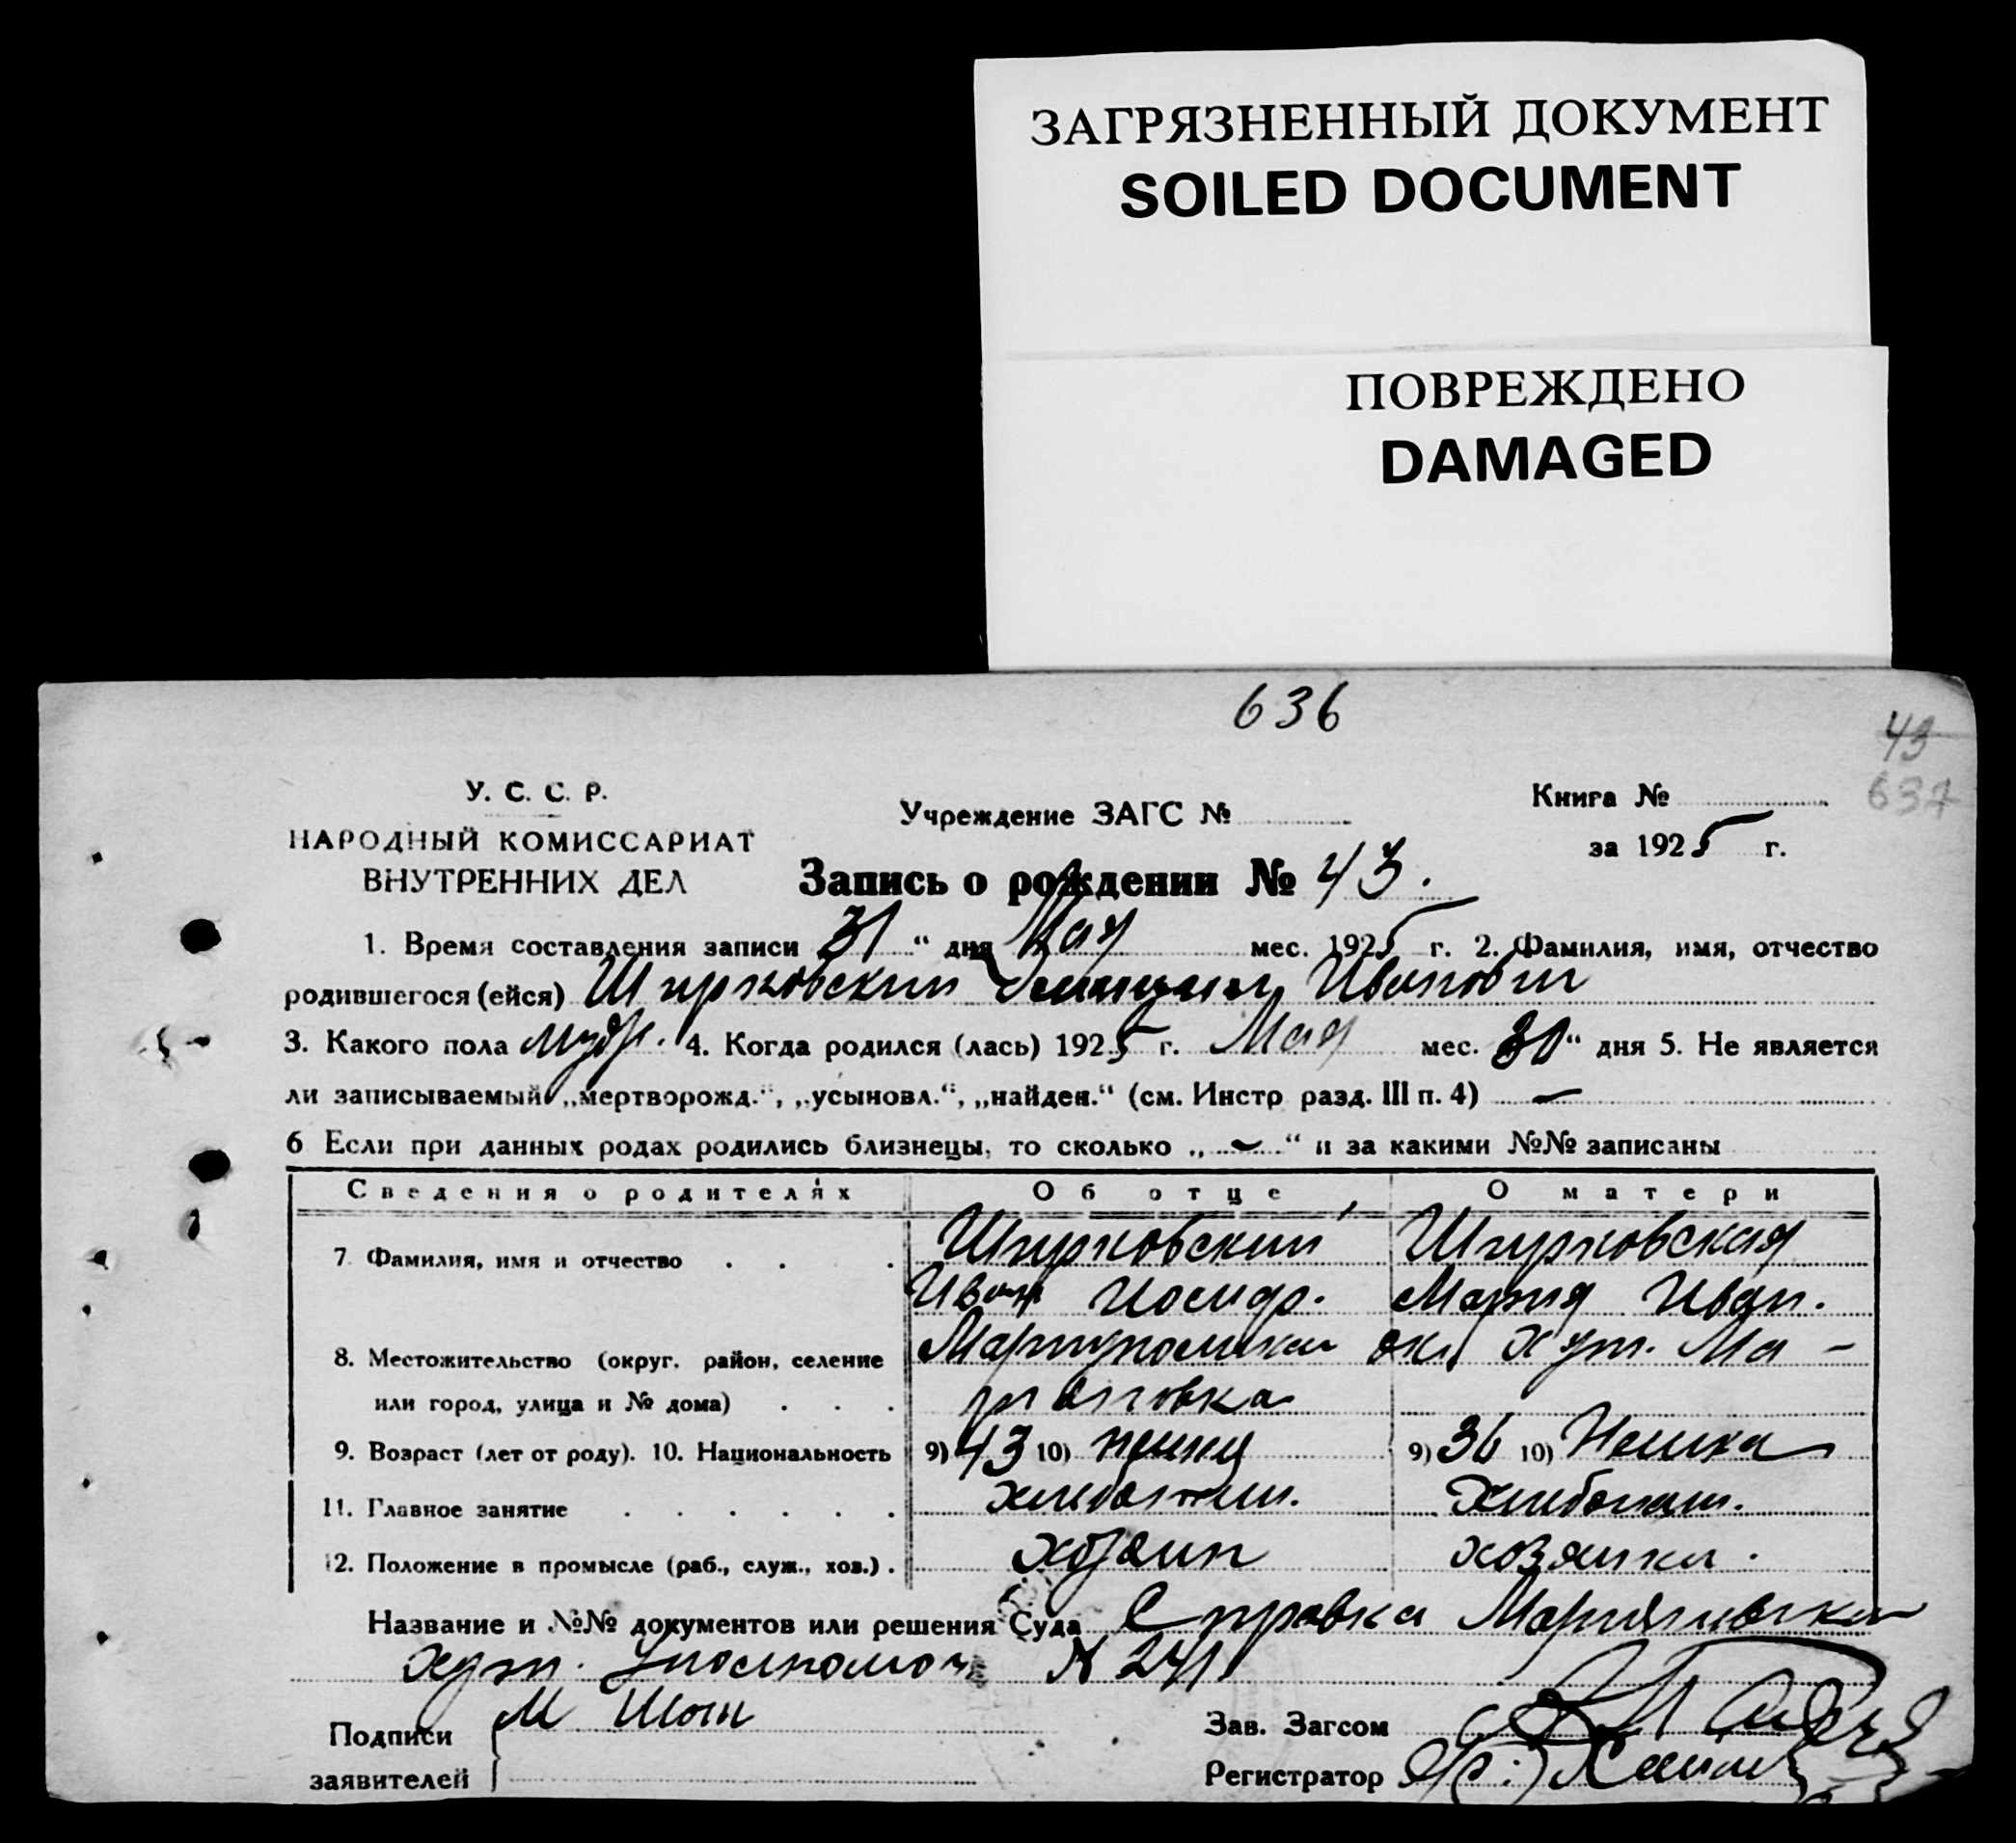 ЗАГРЯЗНЕННЫЙ ДОКУМЕНТ
SOILED DOCUMENT
ПОВРЕЖДЕНО
DAMAGED
636
43
637
У. С. С. Р.
НАРОДНЫЙ КОМИССАРИАТ
ВНУТРЕННИХ ДЕЛ
Учреждение ЗАГС №
Книга №
за 1925 г.
Запись о рождении № 43.
1. Время составления записи 31 " дня Мая мес. 1925 г. 2. Фамилия, имя, отчество
родившегося (ейся) Шпурковский Иванович
3. Какого пола мужс. 4. Когда родился (лась) 1925 г. Мая мес. 30 " дня 5. Не является
ли записываемый „мертворожд.“, „усыновл.“, „найден.“ (см. Инстр разд. III п. 4) —
6 Если при данных родах родились близнецы, то сколько „ — “ и за какими №№ записаны
Сведения о родителях Об отце О матери
7. Фамилия, имя и отчество Шпурковский Шпурковская
Иван Иосиф. Мария Иван.
8. Местожительство (округ, район, селение Мариупольски ок. хут. Ма-
или город, улица и № дома) рьяновка
9. Возраст (лет от роду). 10. Национальность 9) 43 10) немец 9) 36 10) Немка
11. Главное занятие хлебопаш. Хлебопаш.
12. Положение в промысле (раб., служ., хоз.) хозяин хозяйка.
Название и №№ документов или решения Суда Справка Марьяновска
хут. Уполномоч. № 241
Подписи М Шот
заявителей
Зав. Загсом
Регистратор